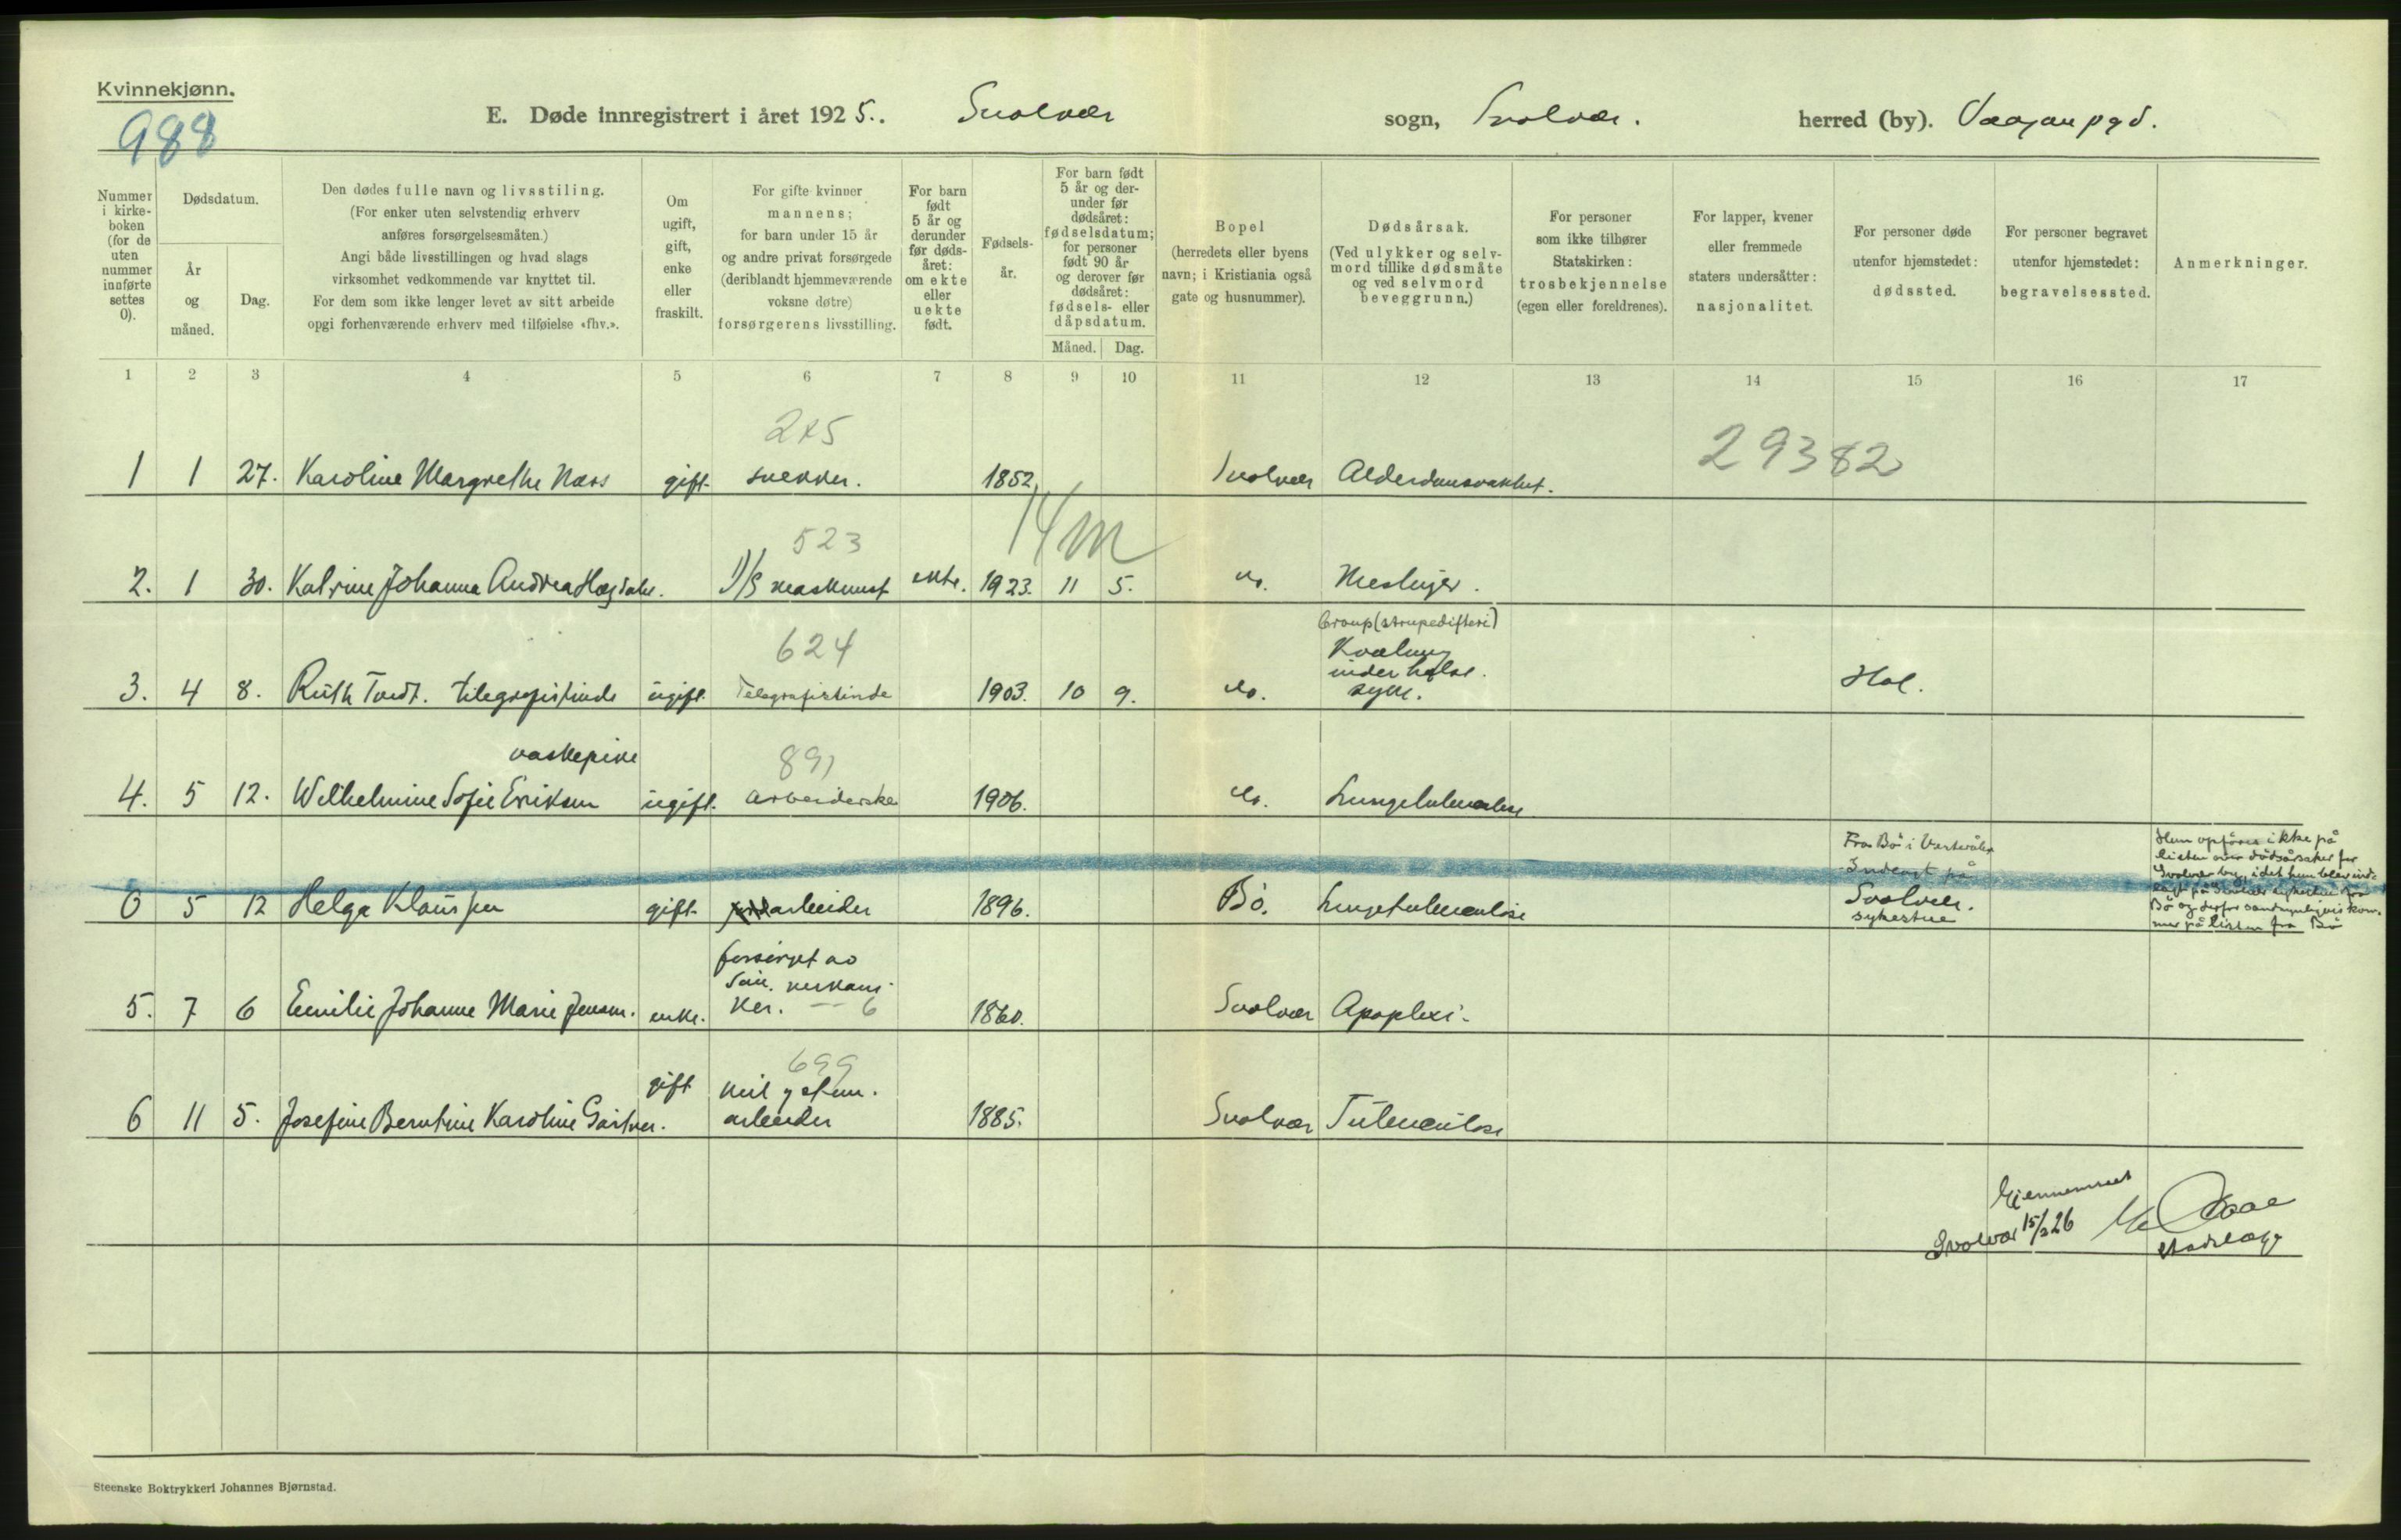 Kvinnekjønn.
988
E. Døde innregistrert i året 1925. Svolvær sogn, Svolvær. herred (by). Vaagan pgd.
Nummer i kirkeboken (for de uten nummer innførte settes 0).
Dødsdatum.
År og måned.
Dag.
Den dødes fulle navn og livsstiling.
(For enker uten selvstendig erhverv
anføres forsørgelsesmåten.)
Angi både livsstillingen og hvad slags
virksomhet vedkommende var knyttet til.
For dem som ikke lenger levet av sitt arbeide
opgi forhenværende erhverv med tilføielse «fhv.».
Om
ugift,
gift,
enke
eller
fraskilt.
For gifte kvinner
mannens;
for barn under 15 år
og andre privat forsørgede
(deriblandt hjemmeværende
voksne døtre)
forsørgerens livsstilling.
For barn
født
5 år og
derunder
før døds-
året:
om ekte
eller
uekte
født.
Fødsels-
år.
For barn født
5 år og der-
under før
dødsåret:
fødselsdatum;
for personer
født 90 år
og derover før
dødsåret:
fødsels- eller
dåpsdatum.
Måned. Dag.
Bopel
(herredets eller byens
navn; i Kristiania også
gate og husnummer).
Dødsårsak.
(Ved ulykker og selv-
mord tillike dødsmåte
og ved selvmord
beveggrunn.)
For personer
som ikke tilhører
Statskirken:
trosbekjennelse
(egen eller foreldrenes).
For lapper, kvener
eller fremmede
staters undersåtter:
nasjonalitet.
For personer døde
utenfor hjemstedet:
dødssted.
For personer begravet
utenfor hjemstedet:
begravelsessted.
Anmerkninger.
1 2 3 4 5 6 7 8 9 10 11 12 13 14 15 16 17
2x5
29382
1 1 27. Karoline Margrethe Næss gift snekker. 1852, Svolvær Alderdomssvakhet.
14 m
523
2. 1 30. Katrine Johanna Andrea Høgdahl. D/S maskinist ekte. 1923. 11 5. do. Meslinger.
Croup (strupedifteri)
624
3. 4 8. Ruth Tordt. telegrafistinde ugift. Telegrafistinde 1903. 10 9. do. Kvælning under halssyke. Hol.
vaskepike
891
4. 5 12. Wilhelmine Sofie Eriksen ugift. arbeiderske 1906. do. Lungetuberkulose
0 5 12 Helga Klaussen gift arbeider 1896. Bö. Lungetuberkulose
Fra Bö i Vesterålen
Indlagt på
Svolvær.
sykestue
Hun opföres ikke på
listen over dödsårsaker for
Svolvær by, idet hun blev ind-
lagt på Svolvær sykestue fra
Bö og derfor sandsynligvis kom-
mer på listen fra Bö
5. 7 6 Emilie Johanne Marie Jensen. enke. forsörget av Sön, mekani- ker. — 6 1860. Svolvær Apoplexi.
699
6 11 5. Josefine Berntine Karoline Gärtner. gift kul og stem. arbeider 1885. Svolvær Tuberkulose
Gjennemset
Svolvær 15/2 26
stadslæge
Steenske Boktrykkeri Johannes Bjørnstad.